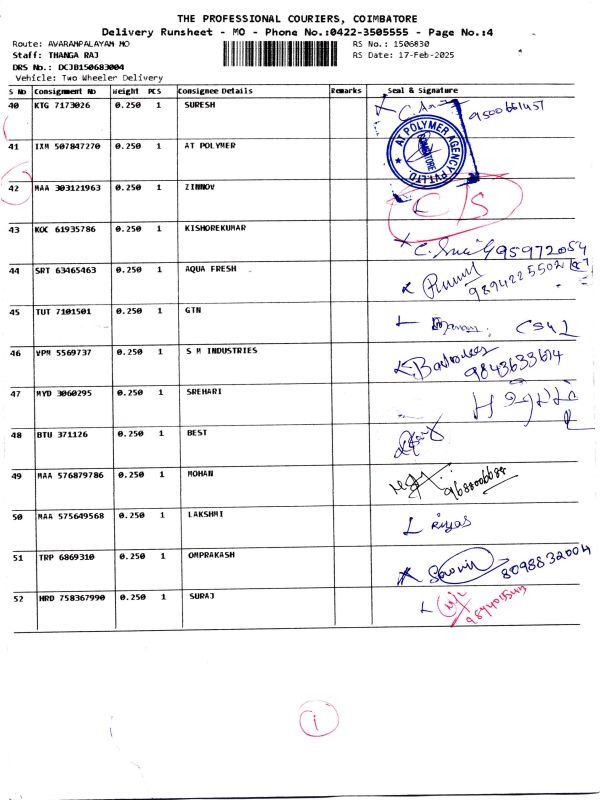 THE PROFESSIONAL COURIERS, COIMBATORE
Delivery Runsheet - MO - Phone No.:0422-3505555 - Page No.:4
Route: AVARAMPALAYAM MO
RS No.: 1506830
Staff: THANGA RAJ
RS Date: 17-Feb-2025
DRS No.: DCJB150683004
Vehicle: Two Wheeler Delivery
S No Consignment No Weight PCS Consignee Details Remarks Seal & Signature
40 KTG 7173026 0.250 1 SURESH 9500661457
41 IXM 507847270 0.250 1 AT POLYMER AT POLYMER AGENCY PVT.LTD COIMBATORE
42 MAA 303121963 0.250 1 ZINNOV C/S
43 KOC 61935786 0.250 1 KISHOREKUMAR
44 SRT 63465463 0.250 1 AQUA FRESH 9894225502
45 TUT 7101501 0.250 1 GTN
46 VPM 5569737 0.250 1 S M INDUSTRIES 9843633614
47 MYD 3060295 0.250 1 SREHARI
48 BTU 371126 0.250 1 BEST
49 MAA 576879786 0.250 1 MOHAN
50 MAA 575649568 0.250 1 LAKSHMI riyas
51 TRP 6869310 0.250 1 OMPRAKASH 8098832004
52 HRD 758367990 0.250 1 SURAJ
1